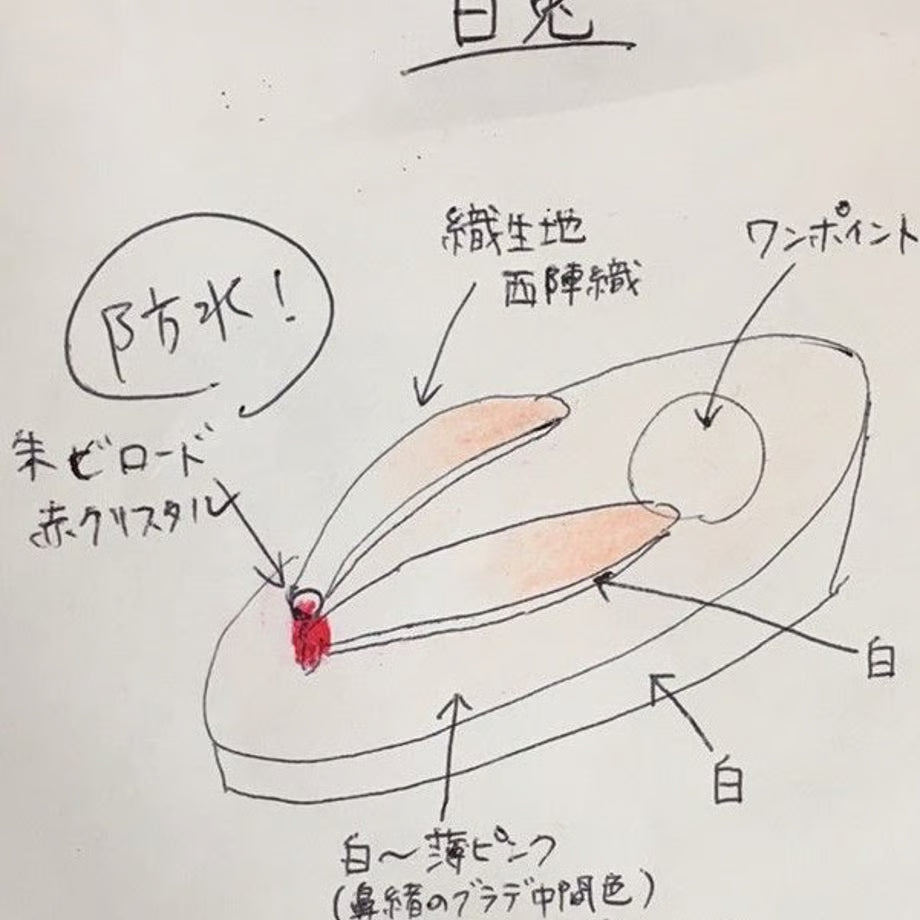 白兎
織生地
西陣織
ワンポイント
防水!
朱ビロード
赤クリスタル
白
白
白～薄ピンク
(鼻緒のグラデ中間色)